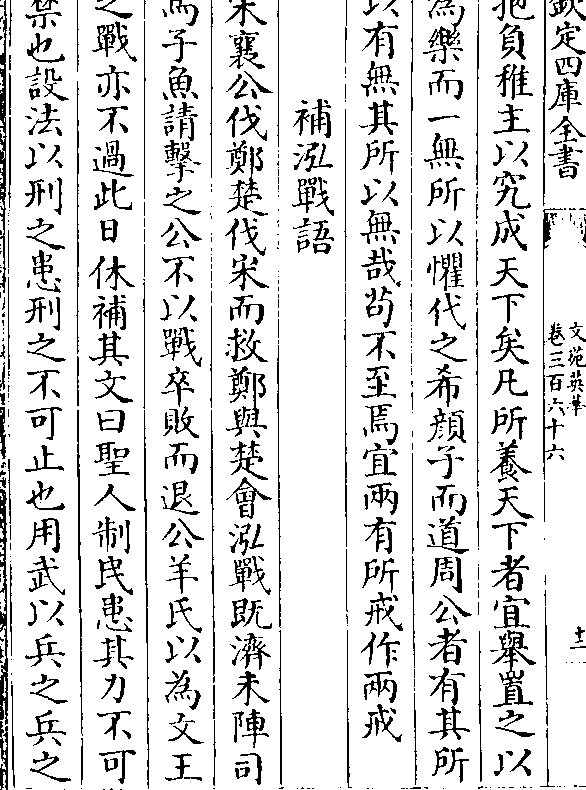 欽定四庫全書
文苑英華
卷三百六十六
十二
抱負稚主以究成天下矣凡所養天下者宜舉置之以
為樂而一無所以懼代之希顔子而道周公者有其所
以有無其所以無哉苟不至焉宜兩有所戒作兩戒
補泓戰語
宋襄公伐鄭楚伐宋而救鄭與楚會泓戰既濟未陣司
馬子魚請擊之公不以戰卒敗而退公羊氏以為文王
之戰亦不過此日休補其文曰聖人制民患其力不可
禁也設法以刑之患刑之不可止也用武以兵之兵之